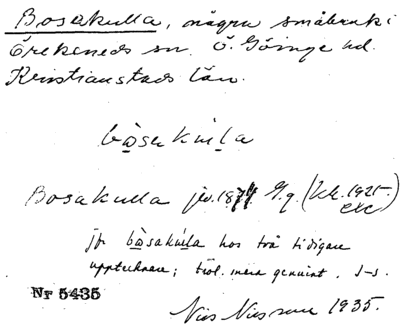 Bosakulla, några småbruk i
Örkeneds sn. Ö. Göinge hd.
Kristianstads län.
bòsakúlla
Bosakulla jrv. 1871 (Kk. 1925.
etc)
jfr bòsakúlla hos två tidigare
upptecknare; trol. mera genuint. I-s.
Nr 5435
Nils Nilsson 1935.